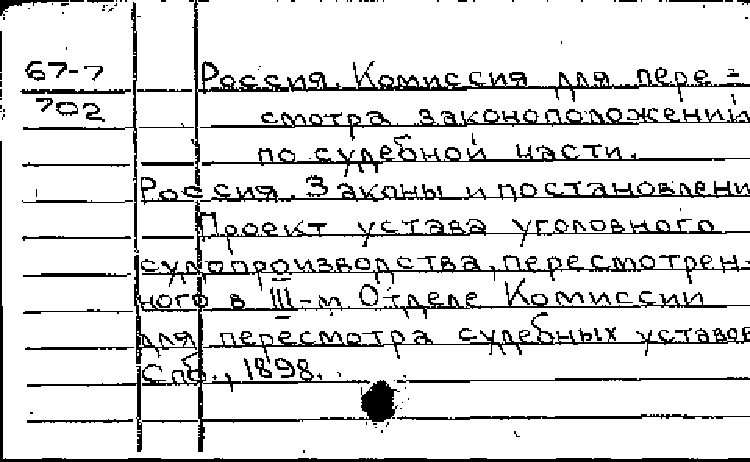 67-7
702
Россия. Комиссия для пере=
смотра законоположений
по судебной части.
Россия. Законы и постановлени
Проект устава уголовного
судопроизводства, пересмотрен-
ного в III-м Отделе Комиссии
для пересмотра судебных уставов
Спб., 1898.